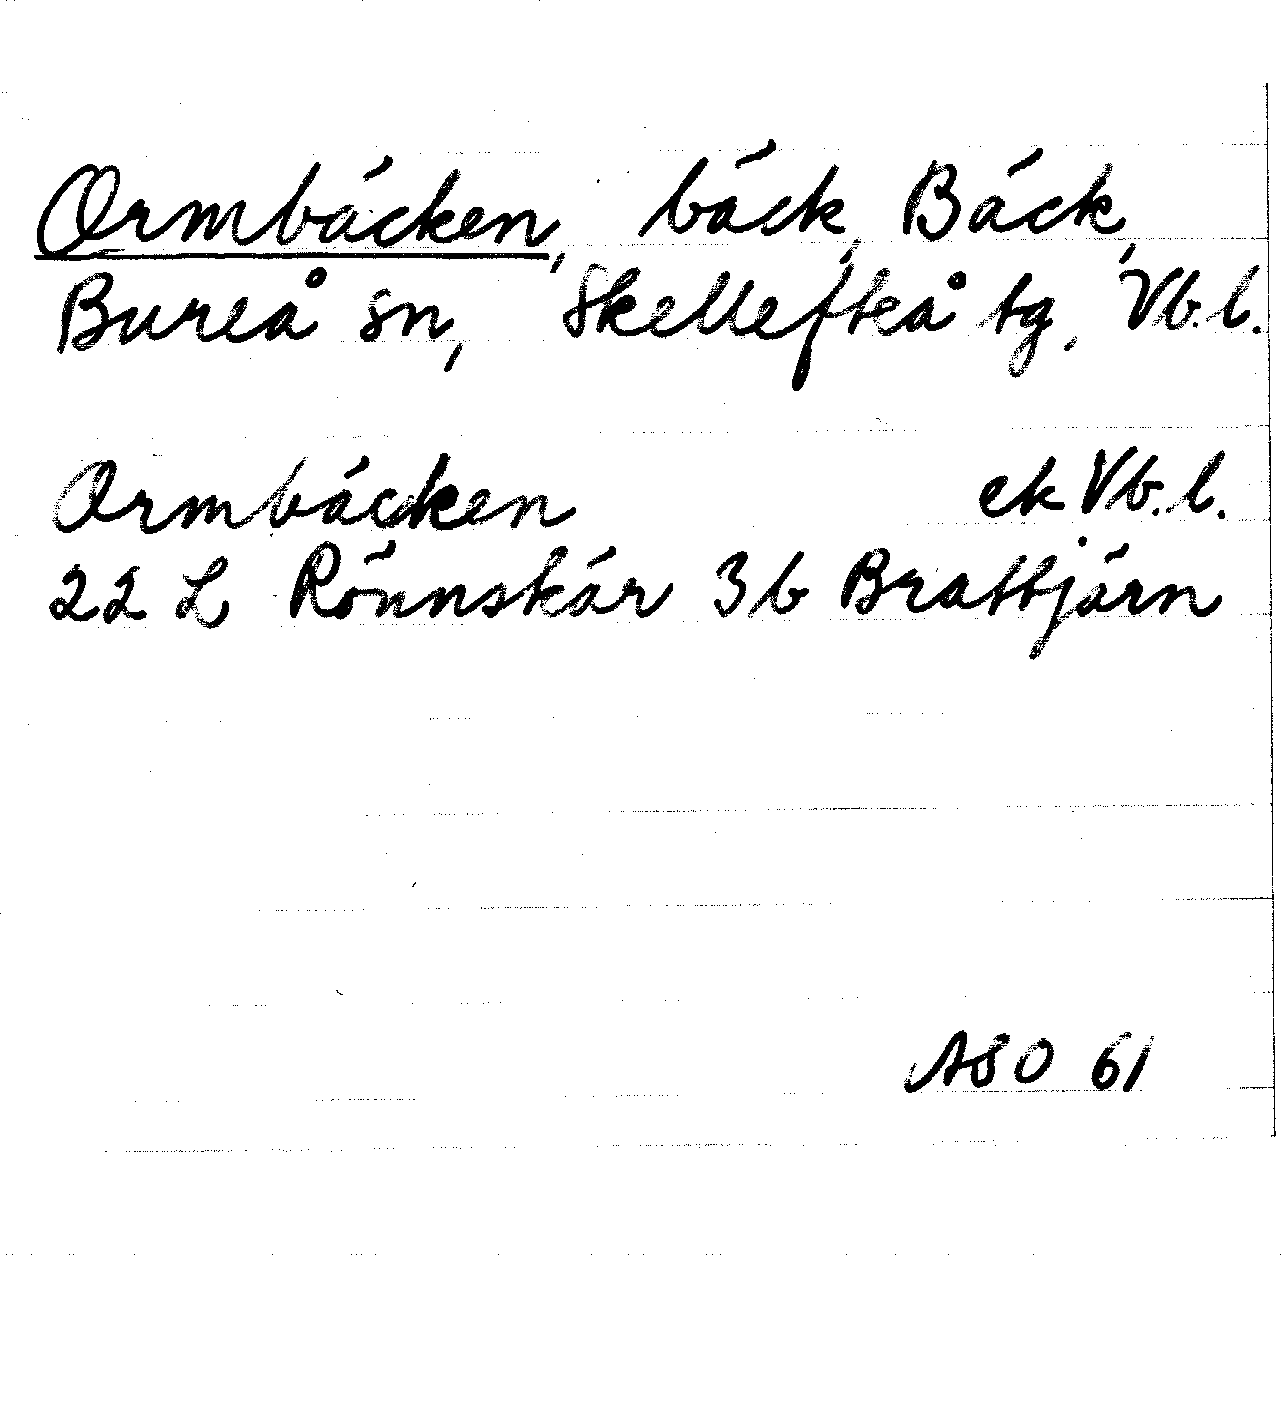 Ormbäcken, bäck, Bäck,
Bureå sn, Skellefteå tg, Vb.l.
Ormbäcken ek Vb.l.
22 L Rönnskär 3b Brattjärn
ASO 61